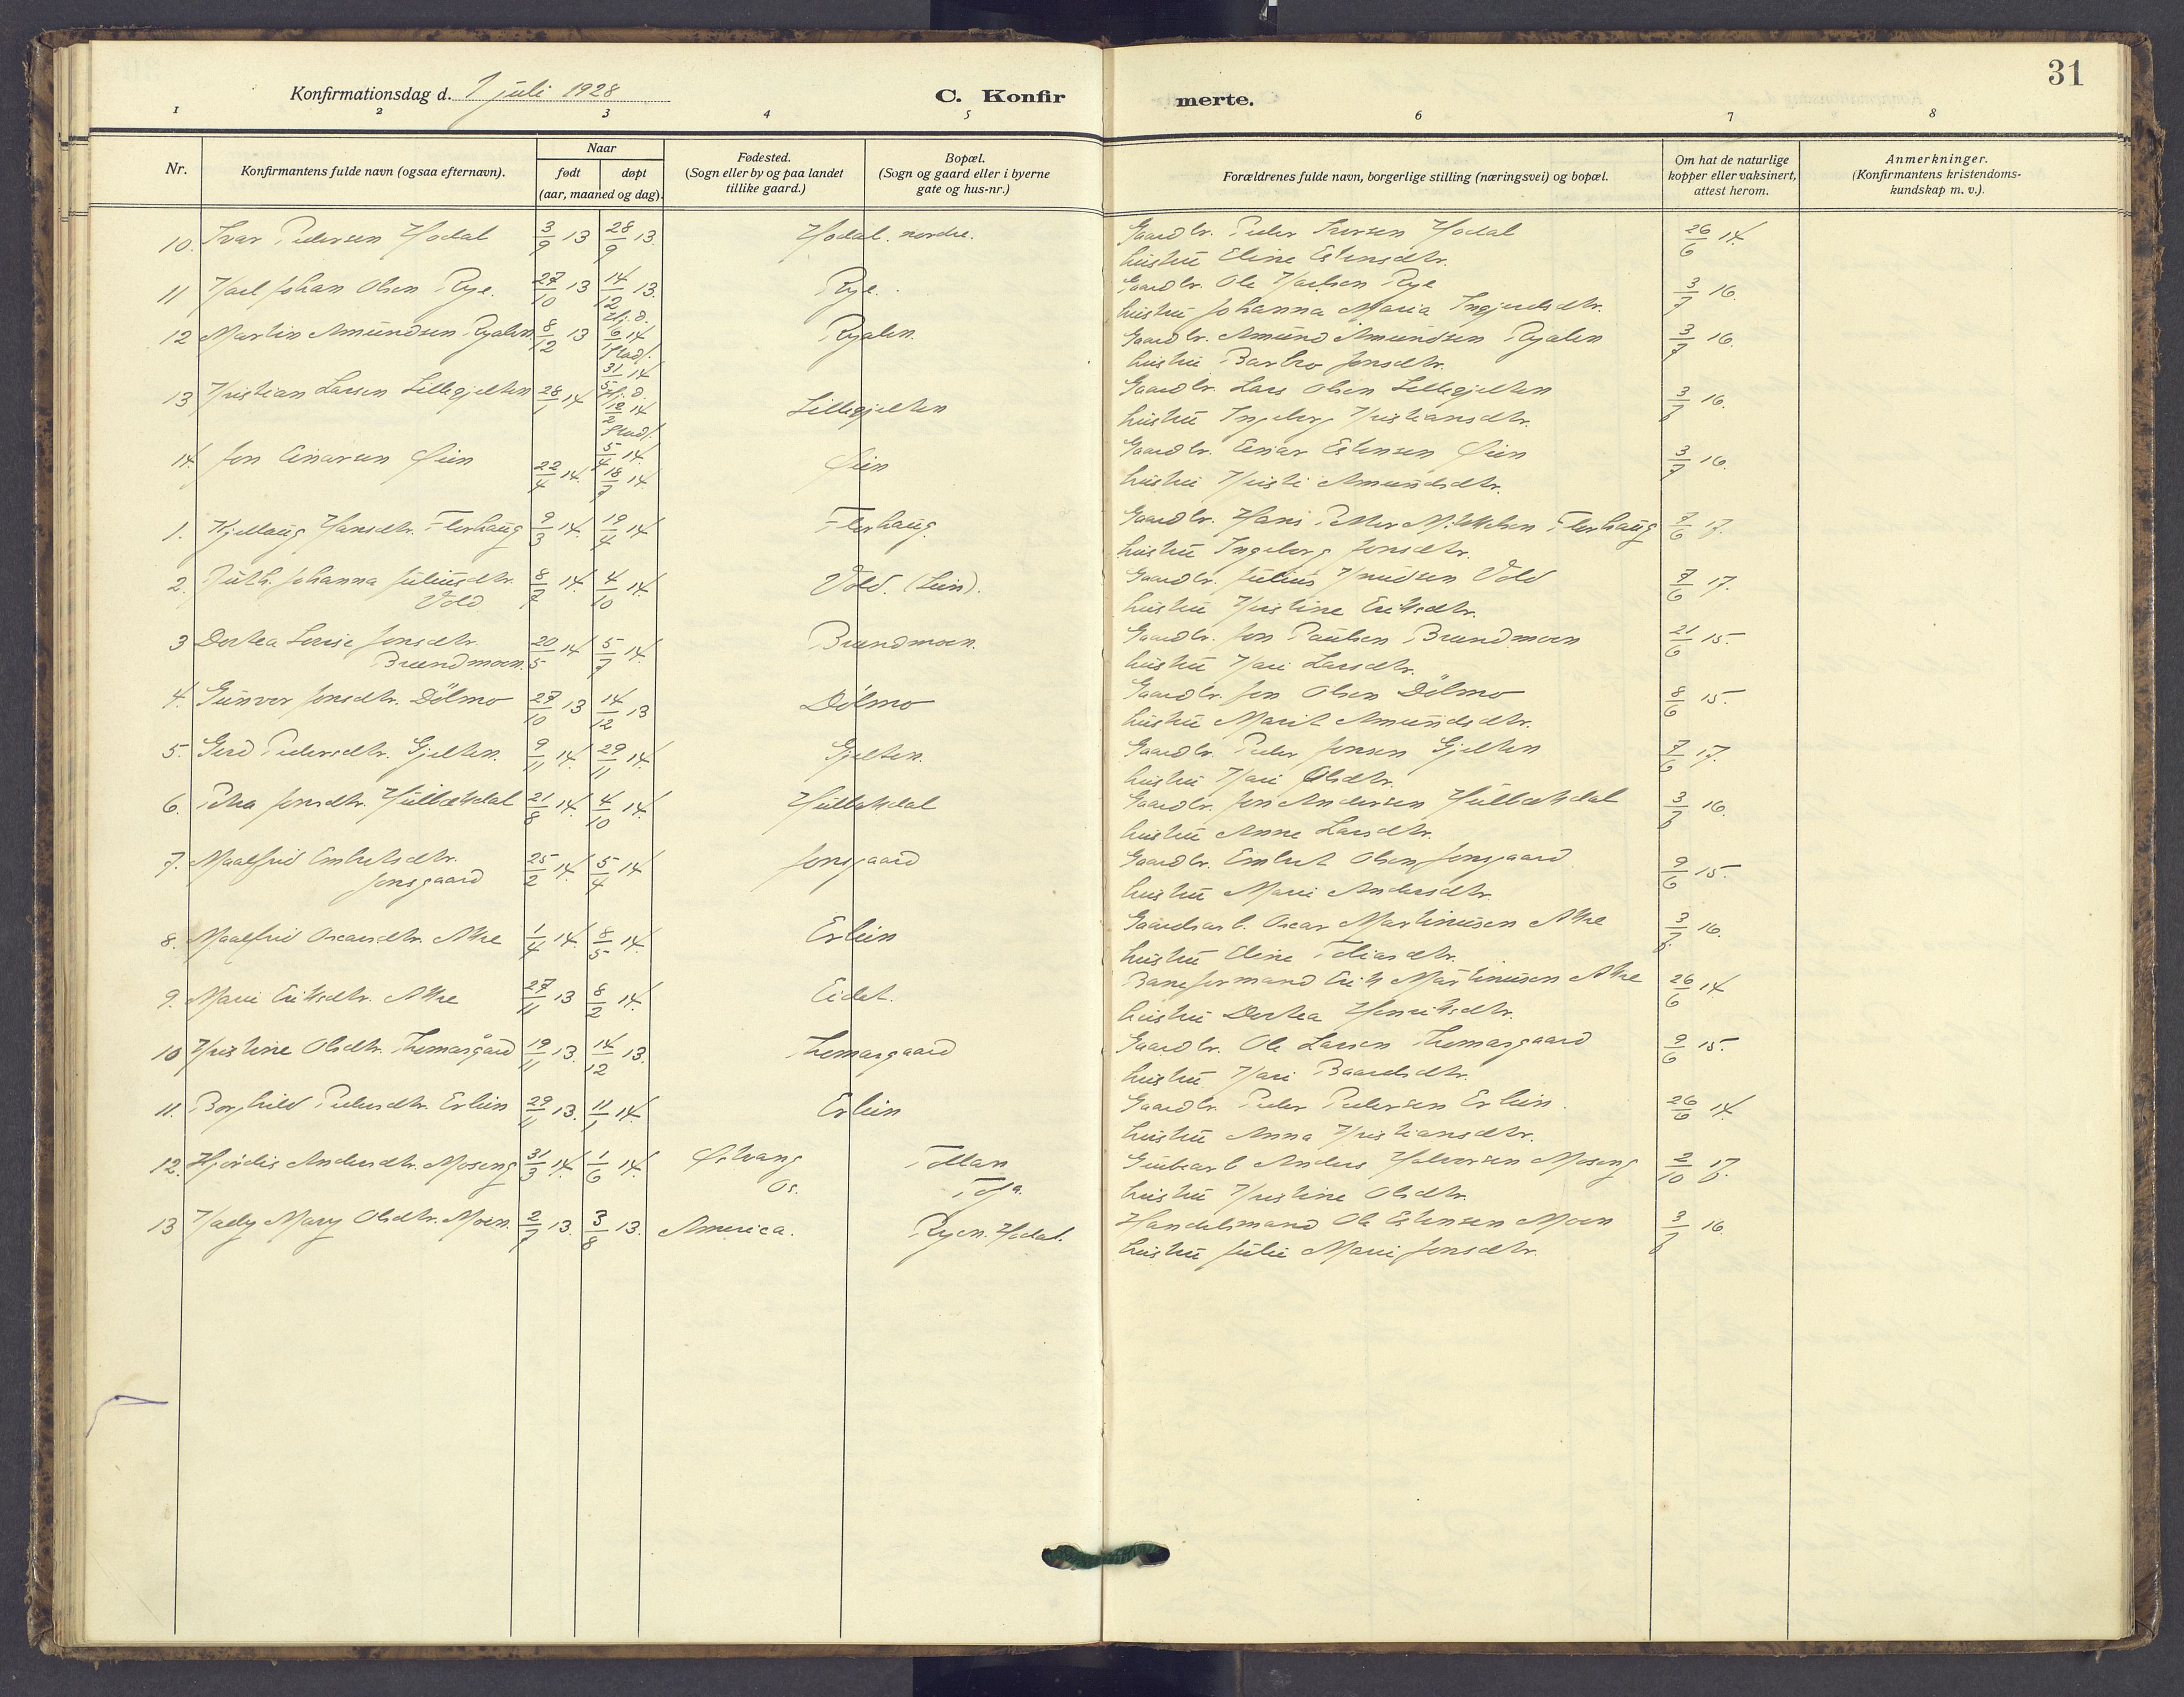 31
Konfirmationsdag d. 1 juli 1928
C. Konfir
merte.
1 2 3 4 5 6 7 8
Nr.
Konfirmantens fulde navn (ogsaa efternavn).
Naar
født døpt
(aar, maaned og dag).
Fødested.
(Sogn eller by og paa landet
tillike gaard.)
Bopæl.
(Sogn og gaard eller i byerne
gate og hus-nr.)
Forældrenes fulde navn, borgerlige stilling (næringsvei) og bopæl.
Om hat de naturlige
kopper eller vaksinert,
attest herom.
Anmerkninger.
(Konfirmantens kristendoms-
kundskap m. v.).
10. Ivar Pedersen Hodal 3/9 13 28/9 13. Hodal nordre. Gaardbr. Peder Iversen Hodal 26/6 14.
hustru Eline Estensdtr.
11 Karl Johan Olsen Rye. 27/10 13 14/12 13. Rye. Gaardbr. Ole Karlsen Rye 3/7 16.
hustru Johanna Maria Ingjerdsdtr.
12 Martin Amundsen Ryalen 8/12 13 Hj. d. 6/1 14 Stadf. 31/5 14 Ryalen. Gaardbr. Amund Amundsen Ryalen 3/7 16.
hustru Barbro Jonsdtr.
13 Kristian Larsen Lillegjelten 28/1 14 Hj. d. 12/2 14 Stadf. 5/4 14. Lillegjelten Gaardbr. Lars Olsen Lillegjelten 3/7 16.
hustru Ingeborg Kristiansdtr.
14. Jon Einarsen Øien 22/4 14. 18/7 14. Øien Gaardbr. Einar Estensen Øien 3/7 16.
hustru Kristi Amundsdtr.
1. Kjellaug Hansdtr. Flerhaug 9/3 14. 19/4 14 Flerhaug. Gaardbr. Hans Petter Mikkelsen Flerhaug 7/6 17.
hustru Ingeborg Jonsdtr.
2. Ruth Johanna Juliusdtr. 8/7 14. 4/10 14. Vold. (Lien). Gaardbr. Julius Knudsen Vold 7/6 17.
Vold hustru Kristine Eriksdtr.
3 Dortea Lovise Jonsdtr. 20/5 14 5/7 14. Brændmoen. Gaardbr. Jon Paulsen Brændmoen 21/6 15.
Brændmoen. hustru Kari Larsdtr.
4. Gunvor Jonsdtr. Dölmo 27/10 13 14/12 13 Dølmo Gaardbr. Jon Olsen Dölmo 8/6 15.
hustru Marit Amundsdtr.
5. Gerd Pedersdtr. Gjelten. 9/11 14. 29/11 14. Gjelten. Gaardbr. Peder Jonsen Gjelten 7/6 17.
hustru Kari Olsdtr.
6. Petra Jonsdtr. Hulbækdal 21/8 14. 4/10 14. Hulbækdal Gaardbr. Jon Andersen Hulbækdal 3/7 16.
hustru Anne Larsdtr.
7. Maalfrid Embretsdtr. 25/2 14. 5/4 14 Jonsgaard Gaardbr. Embret Olsen Jonsgaard 9/6 15.
Jonsgaard hustru Mari Andersdtr.
8. Maalfrid Oscarsdtr. Akre 1/4 14. 8/5 14. Erlien Gaardsarb. Oscar Martinusen Akre 3/7 16.
hustru Eline Toliasdtr.
9. Marie Eriksdtr. Akre 27/11 13 8/2 14. Eidet. Baneformand Erik Martinusen Akre 26/6 14
hustru Dortea Henriksdtr.
10 Kristine Olsdtr. Thomasgård 19/11 13. 14/12 13. Thomasgaard Gaardbr. Ole Larsen Thomasgaard 9/6 15.
hustru Kari Baardsdtr.
11. Borghild Pedersdtr. Erlien 29/11 13. 11/1 14. Erlien Gaardbr. Peder Pedersen Erlien. 26/6 14
hustru Anna Kristiansdtr.
12. Hjördis Andersdtr. Moseng 31/3 14. 1/6 14. Østvang Os. Tollan Tolga. Grubearb Anders Halvorsen Moseng 2/10 17.
hustru Kristine Olsdtr.
13 Mary Olsdtr. Moen. 2/7 13. 3/8 13. America. Ryen. Hodal. Handelsmand Ole Estensen Moen 3/7 16.
hustru Julie Marie Jonsdtr.